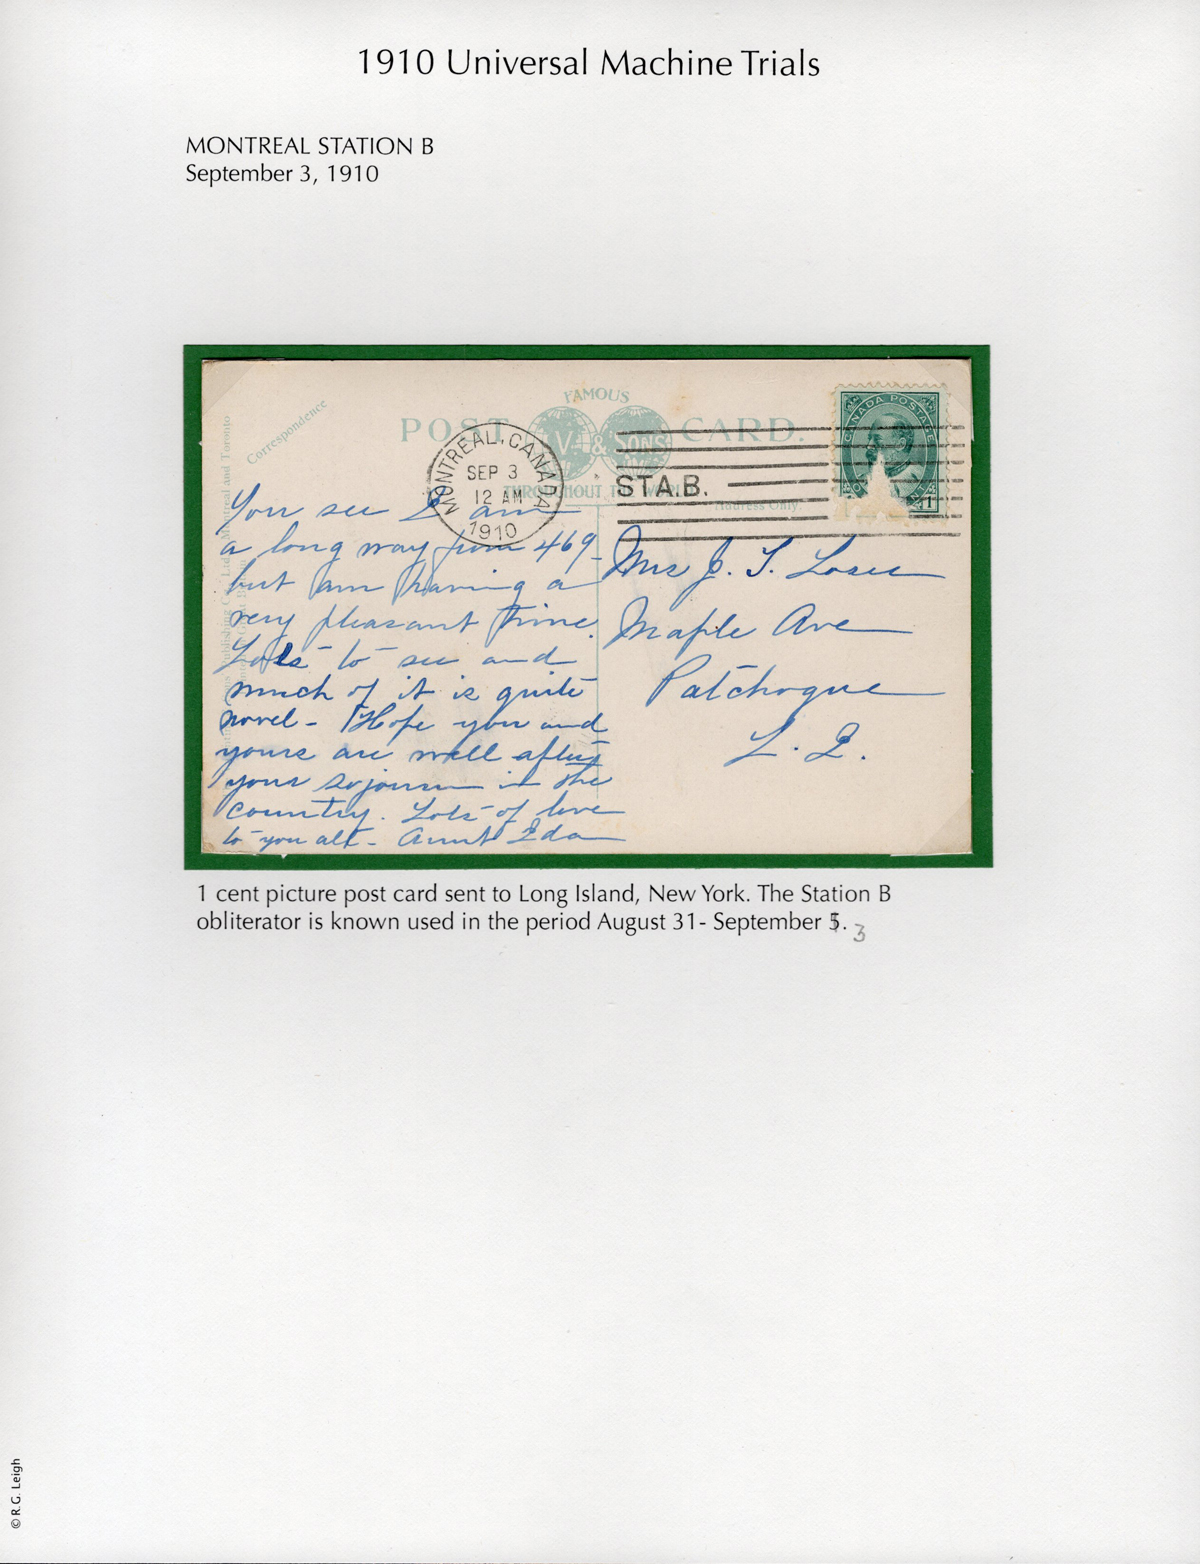 1910 Universal Machine Trials
MONTREAL STATION B
September 3, 1910
FAMOUS
POST CARD.
& SONS
THROUGHOUT THE WORLD
Correspondence
Montreal and Toronto
Address Only.
MONTREAL, CANADA
SEP 3
12 AM
1910
STA.B.
CANADA POSTAGE
1
You see I am
a long way from 469-
but am having a
very pleasant time.
Lots to see and
much of it is quite
novel - Hope you and
yours are well after
your sojourn in the
country. Lots of love
to you all - Aunt Ida
Mrs J. T. Losee
Maple Ave
Patchogue
L. I.
1 cent picture post card sent to Long Island, New York. The Station B
obliterator is known used in the period August 31- September 5. 3
© R.G. Leigh